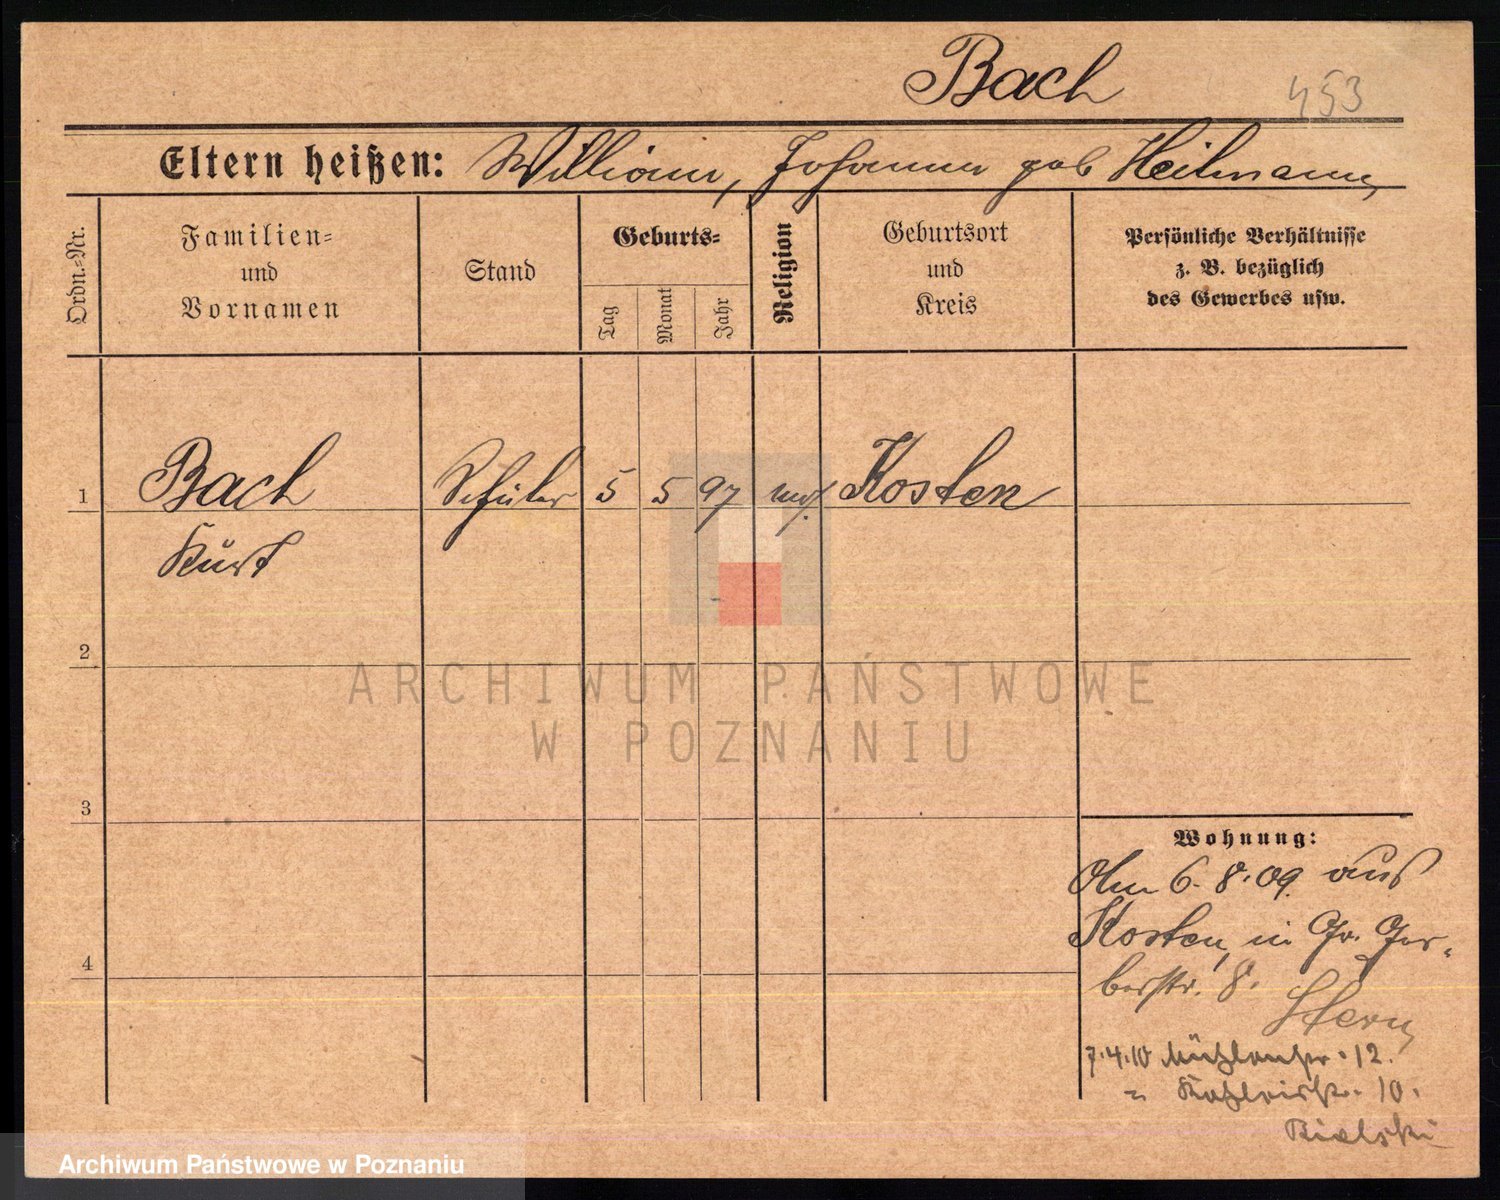 Bach
453
Eltern heißen: William, Johanna geb Heilmann
Ordn.=Nr.
Familien=
und
Vornamen
Stand
Geburts=
Tag
Monat
Jahr
Religion
Geburtsort
und
Kreis
Persönliche Verhältnisse
z. B. bezüglich
des Gewerbes usw.
1 Bach Schüler 5 5 97 Kosten
Kurt
2
3
4
ARCHIWUM PAŃSTWOWE
W POZNANIU
Wohnung:
Am 6. 8. 09. aus
Kosten, in Gr. Ger-
berstr. 8.
Stern
7.4.10 Mühlenstr. 12.
10.
Bielski
Archiwum Państwowe w Poznaniu